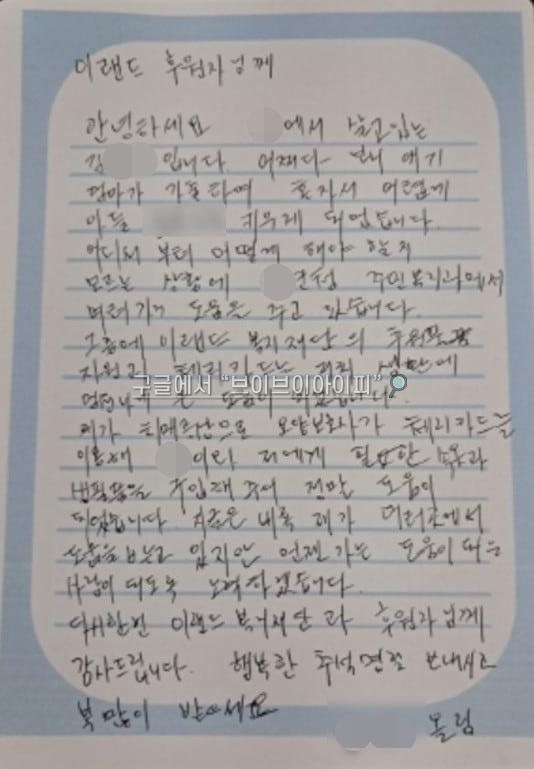 이랜드 후원자님께
안녕하세요 에서 살고있는
김 입니다. 어쩌다 보니 애기
엄마가 가출하여 혼자서 어렵게
아들 키우게 되었습니다.
어디서 부터 어떻게 해야 할지
모르는 상황에 군청 주민복지과에서
여러가지 도움을 주고 있습니다.
그중에 이랜드 복지재단의
지원과 체리카드는 저희 생활에
구글에서 "브이브이아이피"
엄청나게 큰 도움이 되었습니다.
제가 요양보호사가 체리카드를
이용해 이와 저에게 필요한
생필품을 구입해 주어 정말 도움이
되었습니다 지금은 비록 제가 여러곳에서
도움을 받고 있지만 언젠가는 도움이 되는
사람이 되도록 노력하겠습니다.
다시한번 이랜드 복지재단과 후원자님께
감사드립니다. 행복한 추석명절 보내시고
복많이 받으세요
올림